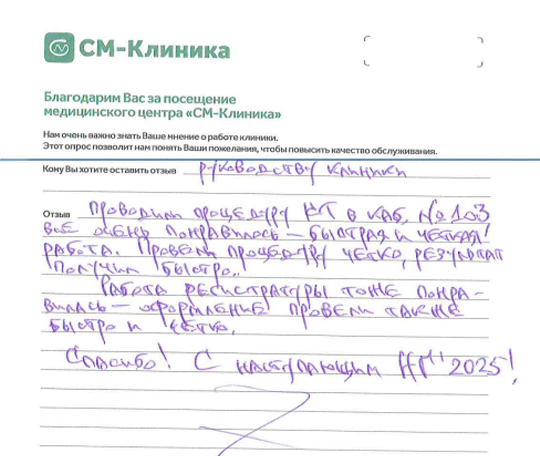 СМ-Клиника
Благодарим Вас за посещение
медицинского центра «СМ-Клиника»
Нам очень важно знать Ваше мнение о работе клиники.
Этот опрос позволит нам понять Ваши пожелания, чтобы повысить качество обслуживания.
Кому Вы хотите оставить отзыв руководству клиники
Отзыв Проводили процедуру КТ в каб. №103
Всё очень понравилось – быстрая и чёткая!
работа. Провели процедуру четко, результат
получил быстро.
Работа регистратуры тоже понра-
вилась – оформление провели также
быстро и чётко.
Спасибо! С наступающим НГ 2025!